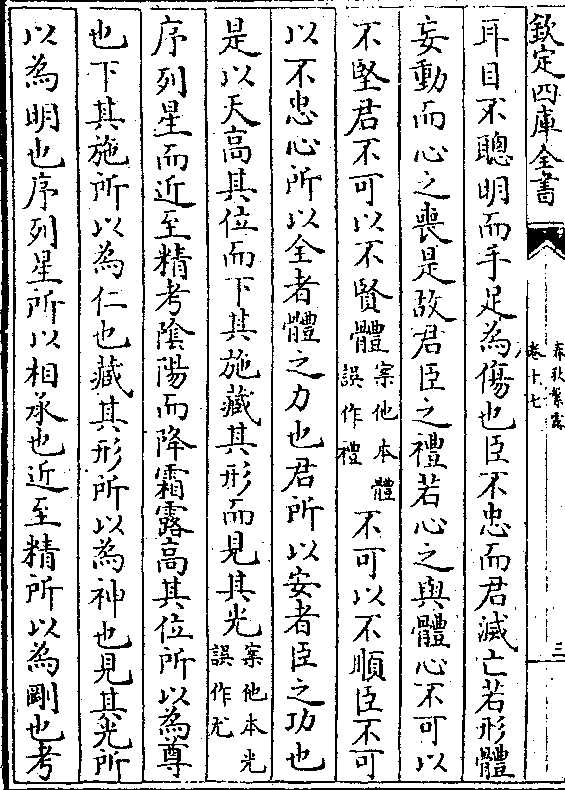 欽定四庫全書
春秋繁露
卷十七
三
耳目不聰明而手足為傷也臣不忠而君滅亡若形體
妄動而心之喪是故君臣之禮若心之與體心不可以
不堅君不可以不賢體案他本體誤作禮不可以不順臣不可
以不忠心所以全者體之力也君所以安者臣之功也
是以天高其位而下其施藏其形而見其光案他本光誤作尤
序列星而近至精考陰陽而降霜露高其位所以為尊
也下其施所以為仁也藏其形所以為神也見其光所
以為明也序列星所以相承也近至精所以為剛也考